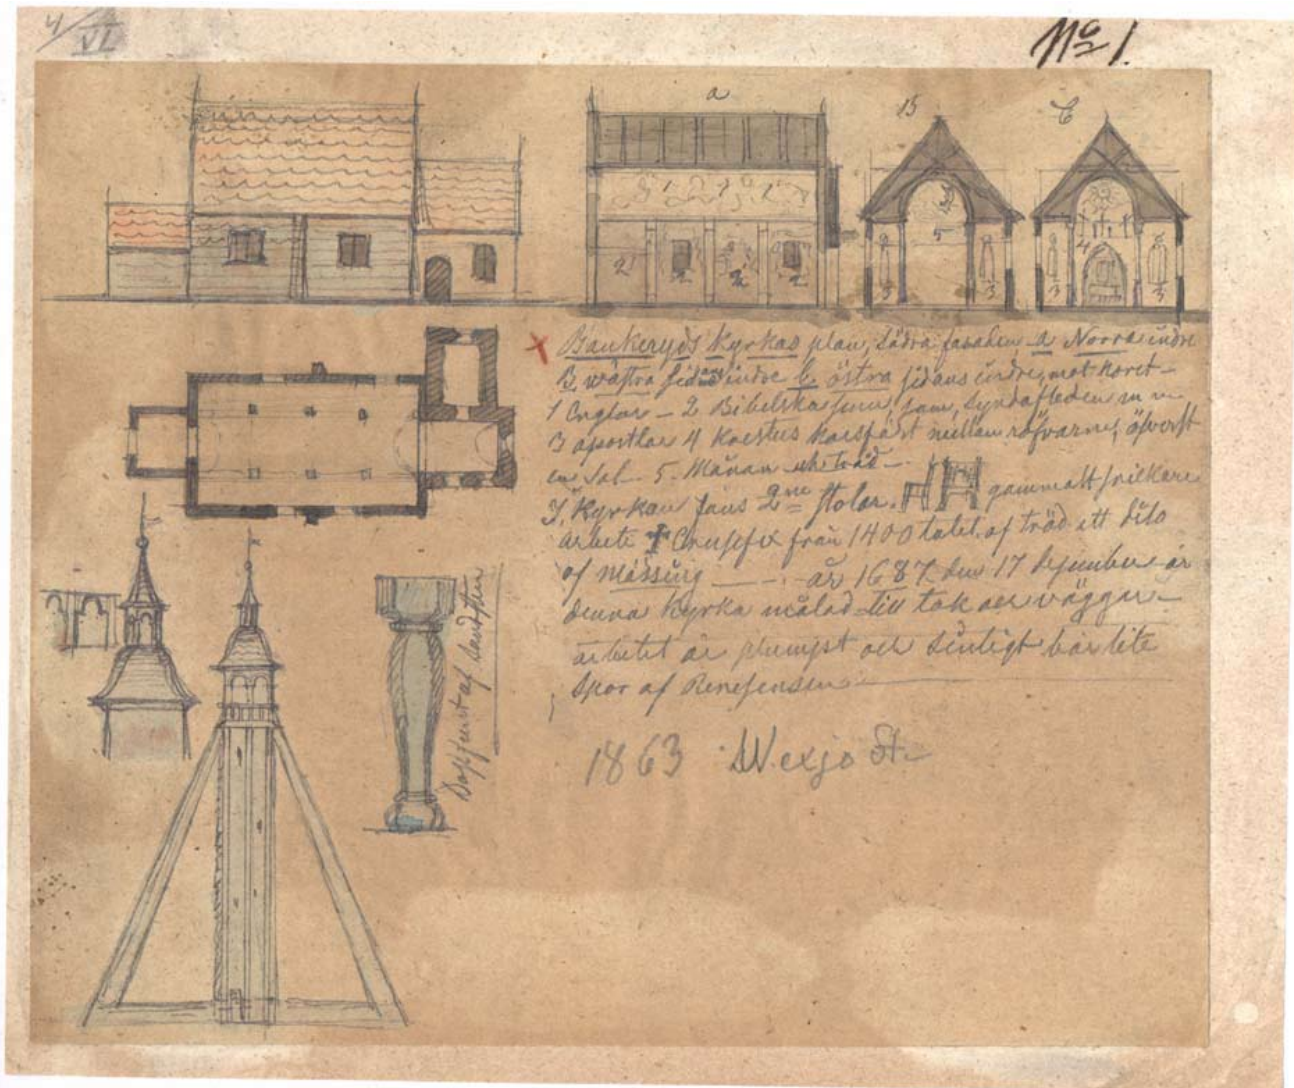 4/VI
No 1.
a
B
C
1 2 1 2 1
2 2 2 2
5
3 3
4
3 3
Bankeryds Kyrkas plan, södra fasaden a Norra indre
B. wästra sidans indre C. östra sidans indre, mot Koret -
1 Englar - 2 Bibelska som, syndafloden m m
3 apostlar 4 Kristus Korsfäst mellan röfvarne, öfverst
en Sol - 5. Månan och träd -
I Kyrkan fans 2ne stolar. gammalt snickare
arbete Crusifix från 1400 talet. af träd ett dito
af mässing - år 1687 den 17 desember är
denna Kyrka målad till tak och väggar -
arbetet är plumpt och bär lite
Spor af Renesensen
1863 Wexjo St.
Dopfunt af Sandsten